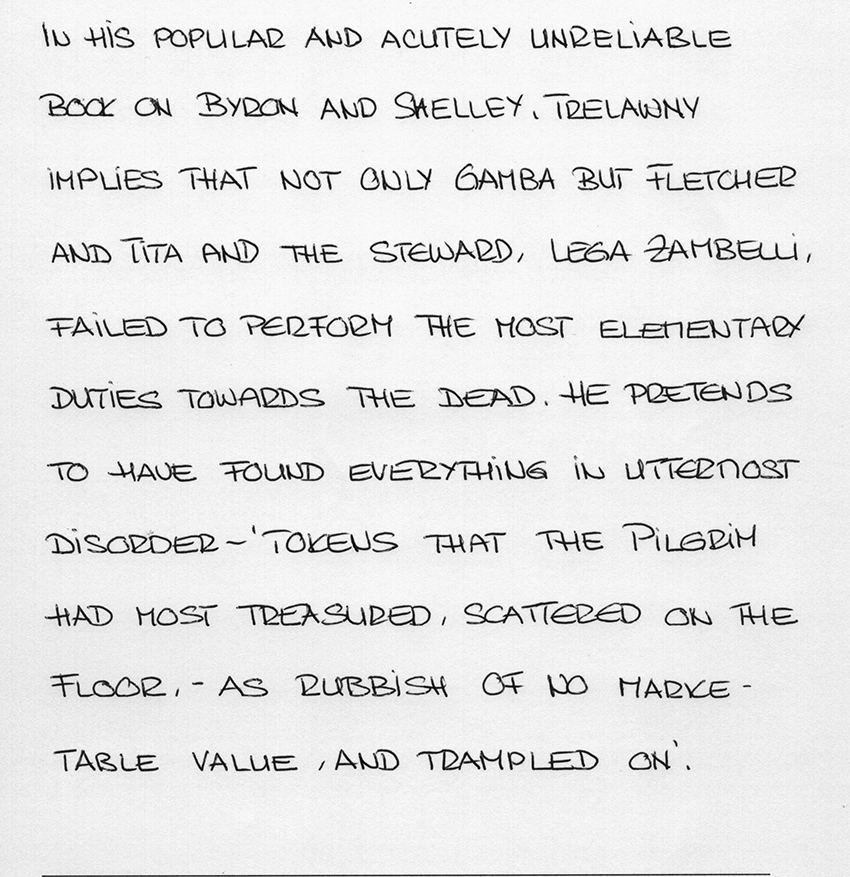 IN HIS POPULAR AND ACUTELY UNRELIABLE
BOOK ON BYRON AND SHELLEY, TRELAWNY
IMPLIES THAT NOT ONLY GAMBA BUT FLETCHER
AND TITA AND THE STEWARD, LEGA ZAMBELLI,
FAILED TO PERFORM THE MOST ELEMENTARY
DUTIES TOWARDS THE DEAD. HE PRETENDS
TO HAVE FOUND EVERYTHING IN UTTERMOST
DISORDER – 'TOKENS THAT THE PILGRIM
HAD MOST TREASURED, SCATTERED ON THE
FLOOR, - AS RUBBISH OF NO MARKE -
TABLE VALUE, AND TRAMPLED ON'.